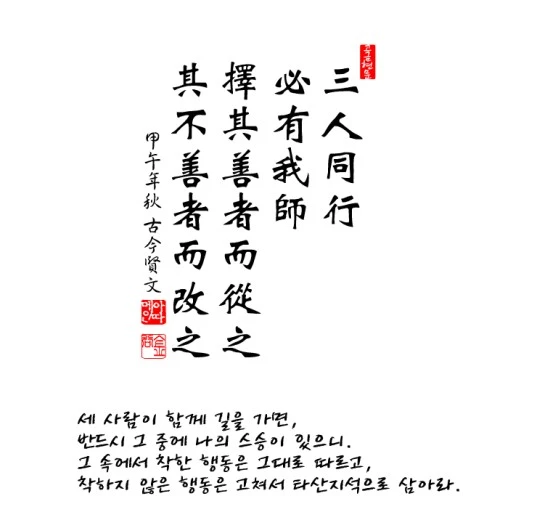 三人同行
必有我師
擇其善者而從之
其不善者而改之
甲午年秋 古今賢文
세 사람이 함께 길을 가면,
반드시 그 중에 나의 스승이 있으니.
그 속에서 착한 행동은 그대로 따르고,
착하지 않은 행동은 고쳐서 타산지석으로 삼아라.